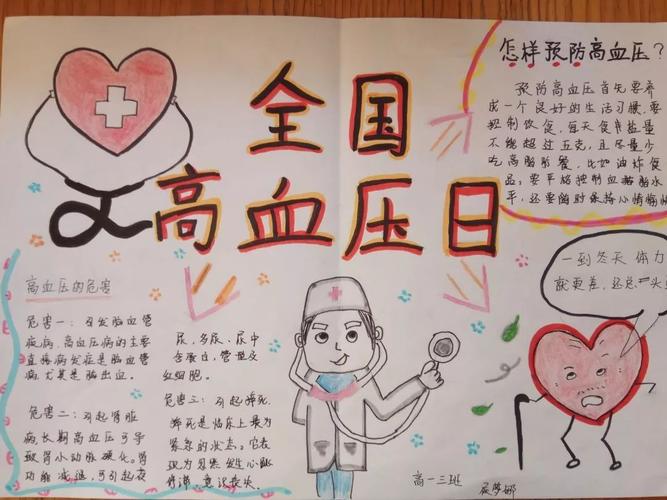 全国
高血压日
怎样预防高血压？
预防高血压首先要养
成一个良好的生活习惯，要
控制饮食，每天食用盐量
不能超过五克，且尽量少
吃高脂肪餐，比如油炸食
品；要平稳控制血糖脂水
平，还要随时保持心情愉快
一到冬天体力
就更差，还总一头
高血压的危害
危害一：引发脑血管
疾病，高血压病的主要
直接并发症是脑血管
病尤其是脑出血。
危害二：引起肾脏
病，长期高血压可导
致肾小动脉硬化。肾
功能减退，可引起夜
尿，多尿、尿中
含蛋白，管型及
红细胞。
危害三：引起猝死。
猝死是临床上最为
紧急的状态。它表
现为忽然发生心脏
停滞，意识丧失
高一三班
梦娜